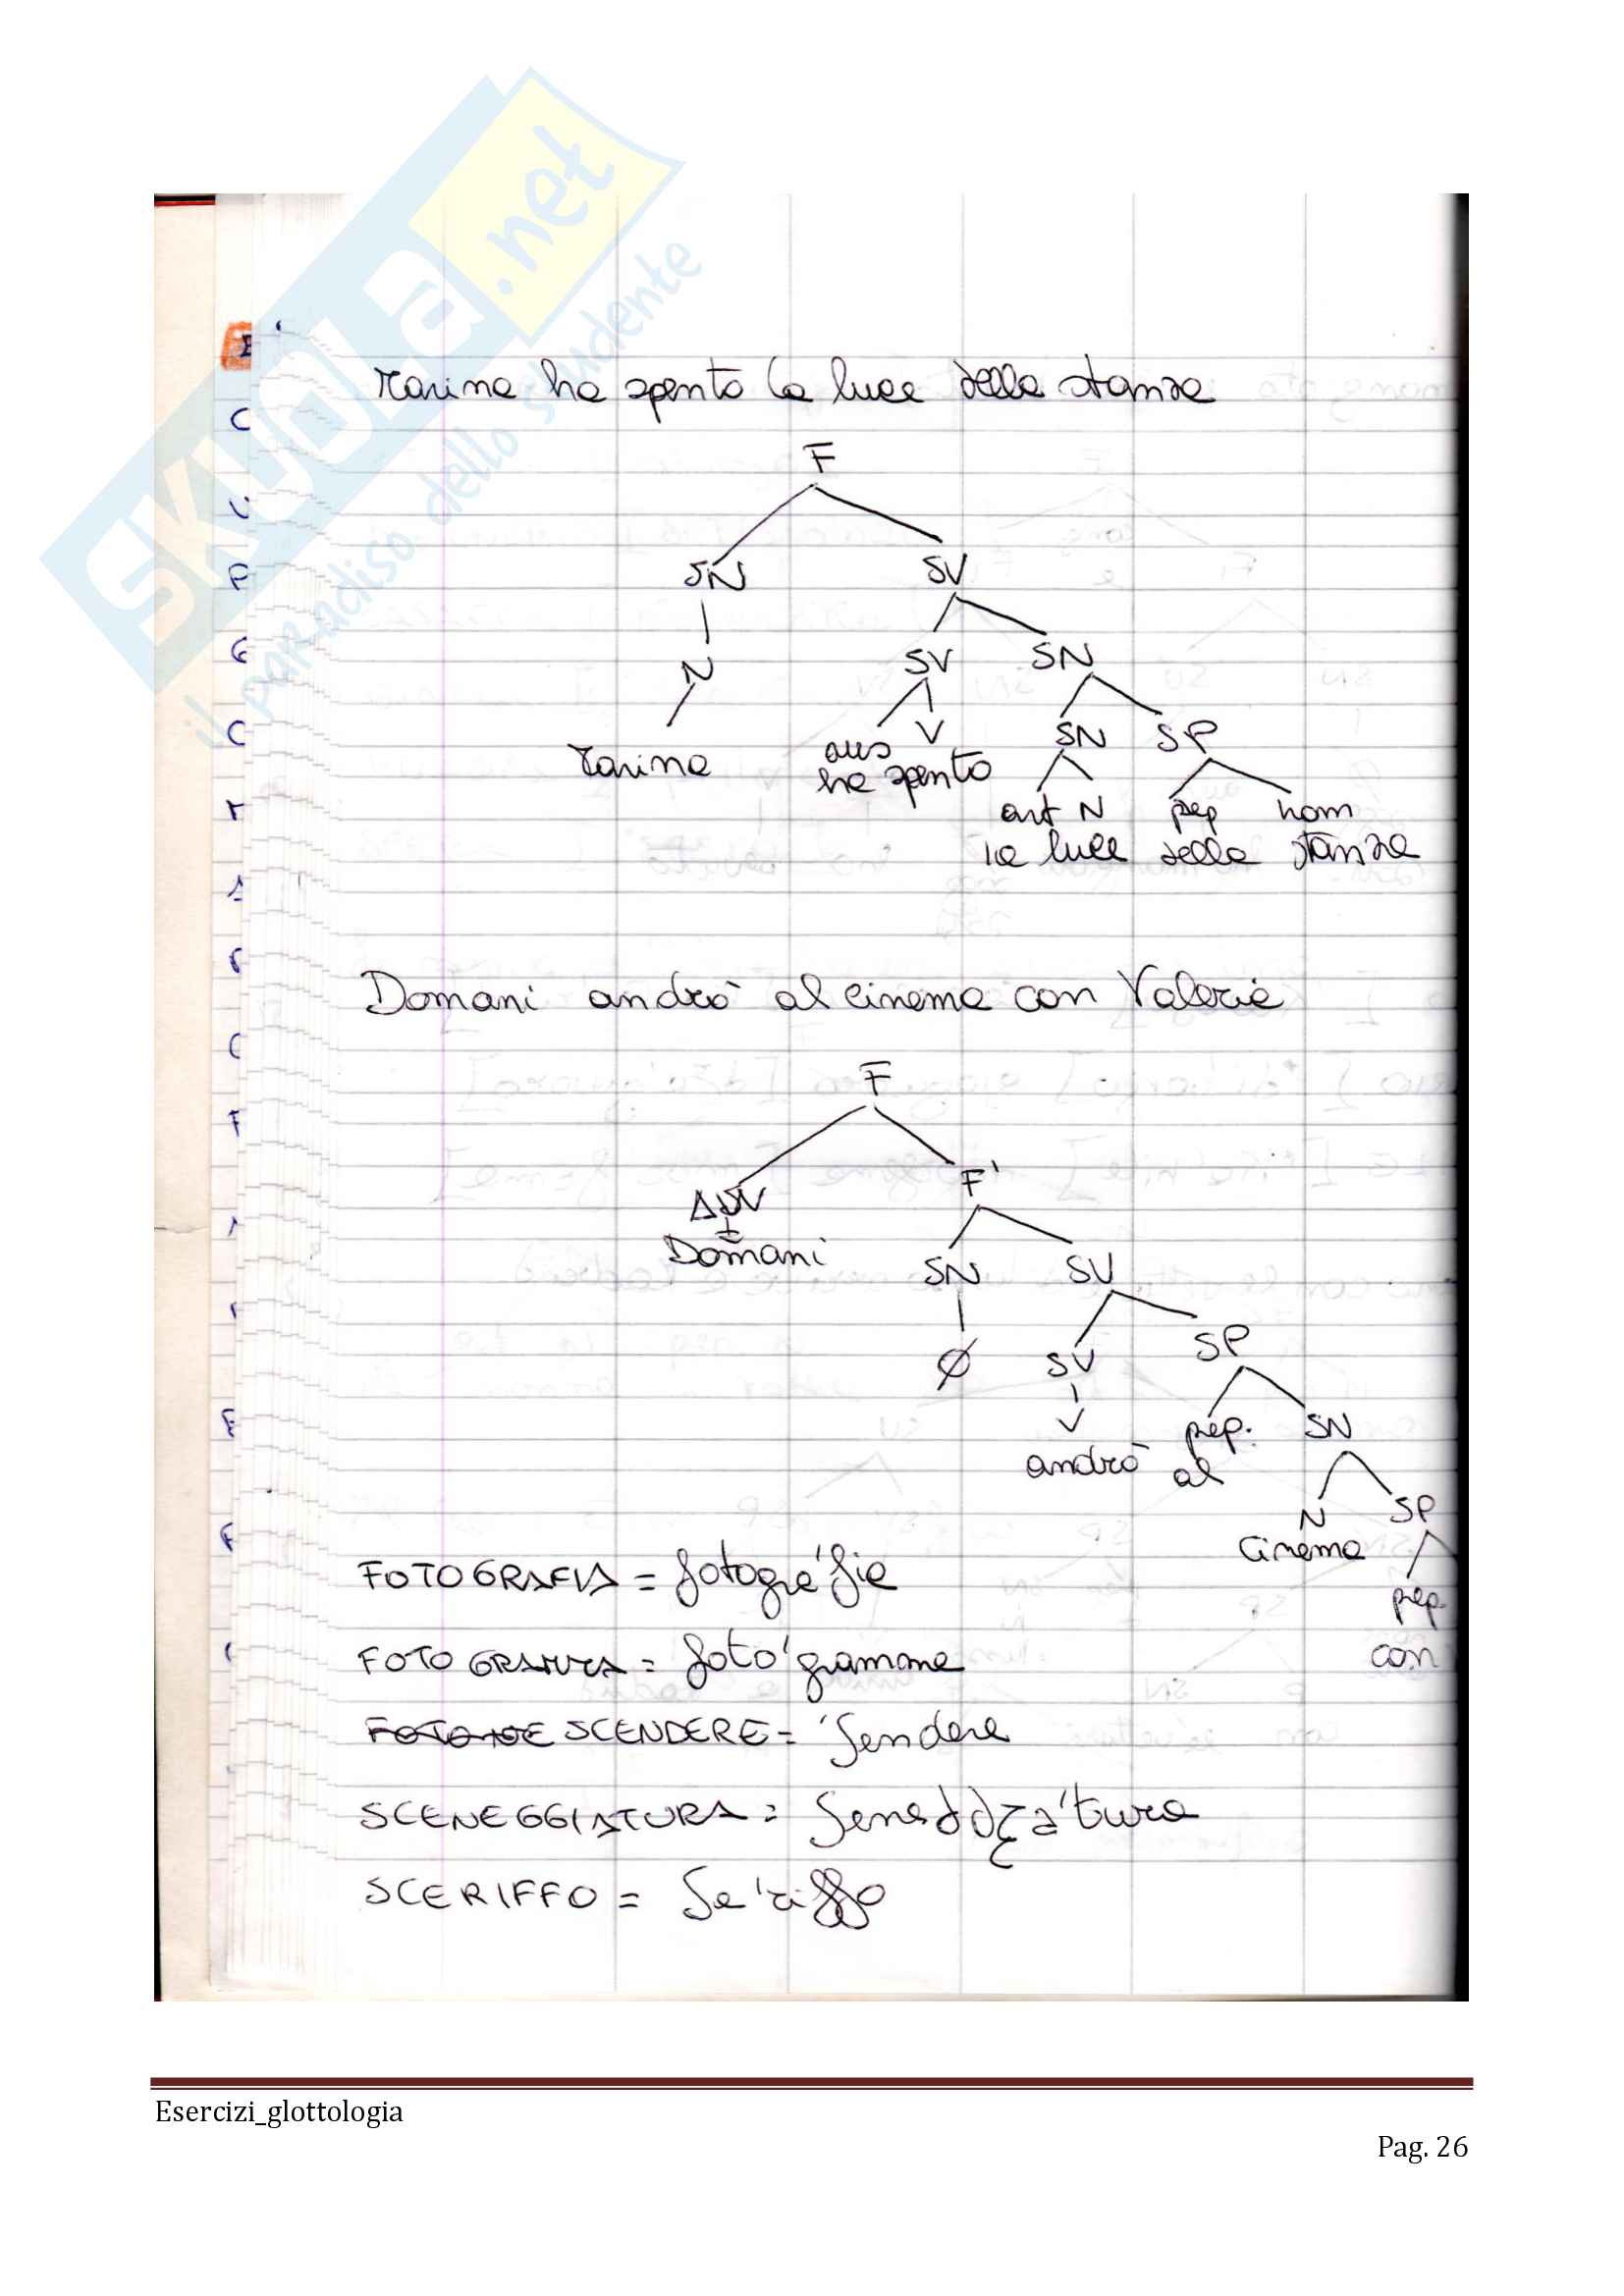 SKUOLA.net
il paradiso dello studente
Marina ha spento la luce della stanza
F
SN SV
N SV SN
aus V SN SP
Marina ha spento art N prep nom
la luce della stanza
Domani andrò al cinema con Valeria
F
AVV F'
Domani SN SV
Ø SV SP
V prep. SN
andrò al N SP
cinema prep
con
FOTOGRAFIA = fotogra'fia
FOTOGRAMMA = foto'gramma
SCENDERE = 'ʃendere
SCENEGGIATURA = ʃeneddʒa'tura
SCERIFFO = ʃe'riffo
Esercizi_glottologia
Pag. 26